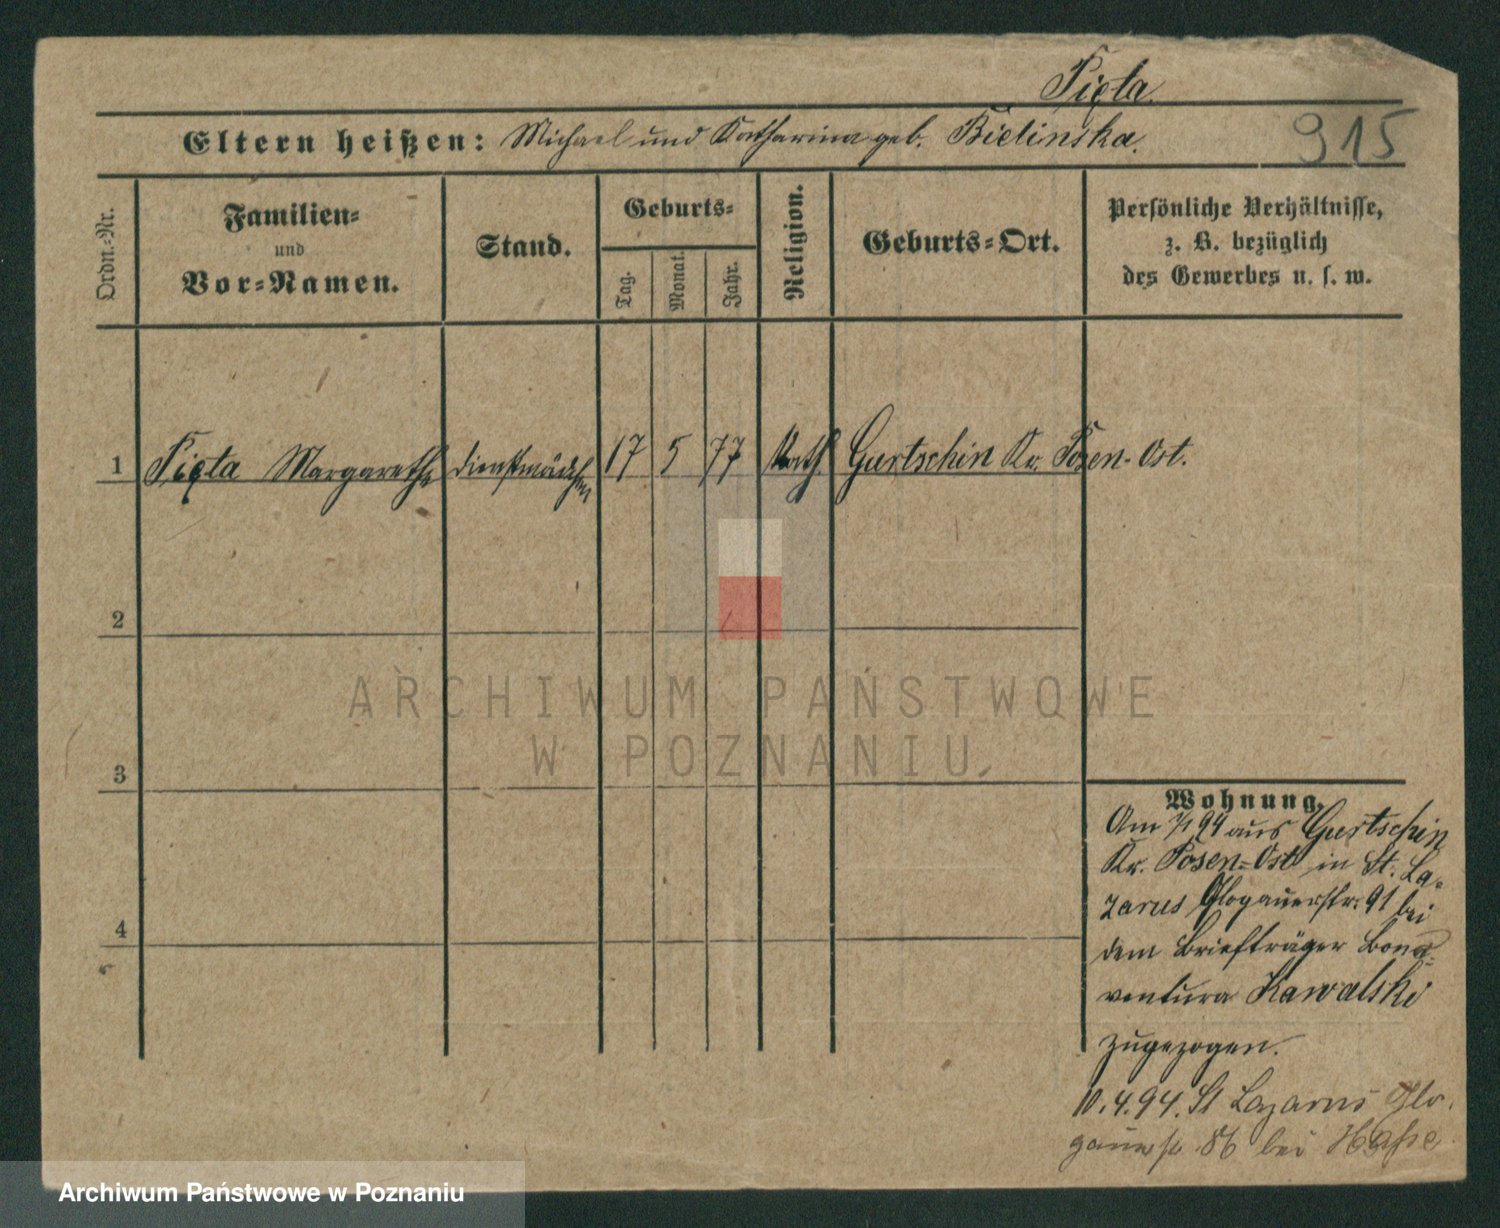 Pięta.
Eltern heißen: Michael und Katharina geb. Bielinska.
915
Ordn.-Nr.
Familien-
und
Vor-Namen.
Stand.
Geburts-
Tag.
Monat.
Jahr.
Religion.
Geburts-Ort.
Persönliche Verhältnisse,
z. B. bezüglich
des Gewerbes u. s. w.
1 Pięta Margarethe Dienstmädchen 17 5 77 Kath Gurtschin Kr. Posen-Ost.
2
3
4
ARCHIWUM PAŃSTWOWE
W POZNANIU
Wohnung.
Am 7/1 94 aus Gurtschin
Kr. Posen-Ost in St. La-
zarus Glogauerstr. 91 bei
dem Briefträger Bona-
ventura Kawalski
zugezogen.
10.4.94. St Lazarus Glo-
gauerstr 86 bei Hasse
Archiwum Państwowe w Poznaniu